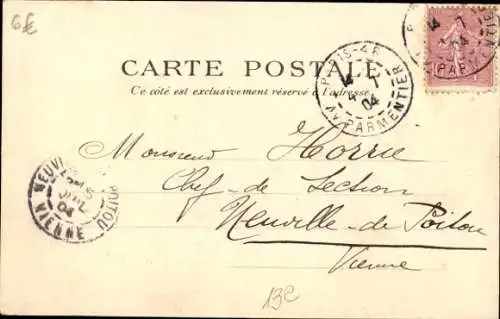 6€
CARTE POSTALE
Ce côté est exclusivement réservé à l'adresse
PARIS-48
4 - 7
04
AV PARMENTIER
PARMENTIER
04
Monsieur Horrie
Chef de Section
Neuville-de-Poitou
Vienne
NEUVI POITOU
04
VIENNE
13e